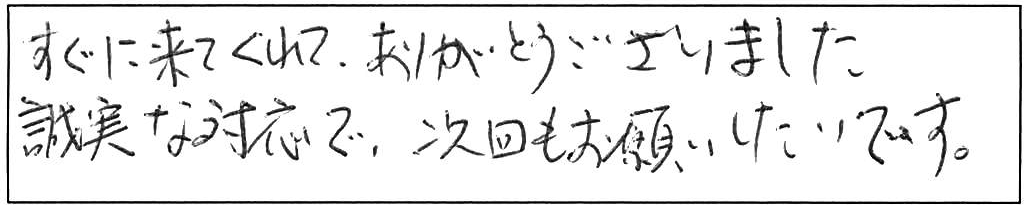 すぐに来てくれて、ありがとうございました
誠実な対応で、次回もお願いしたいです。